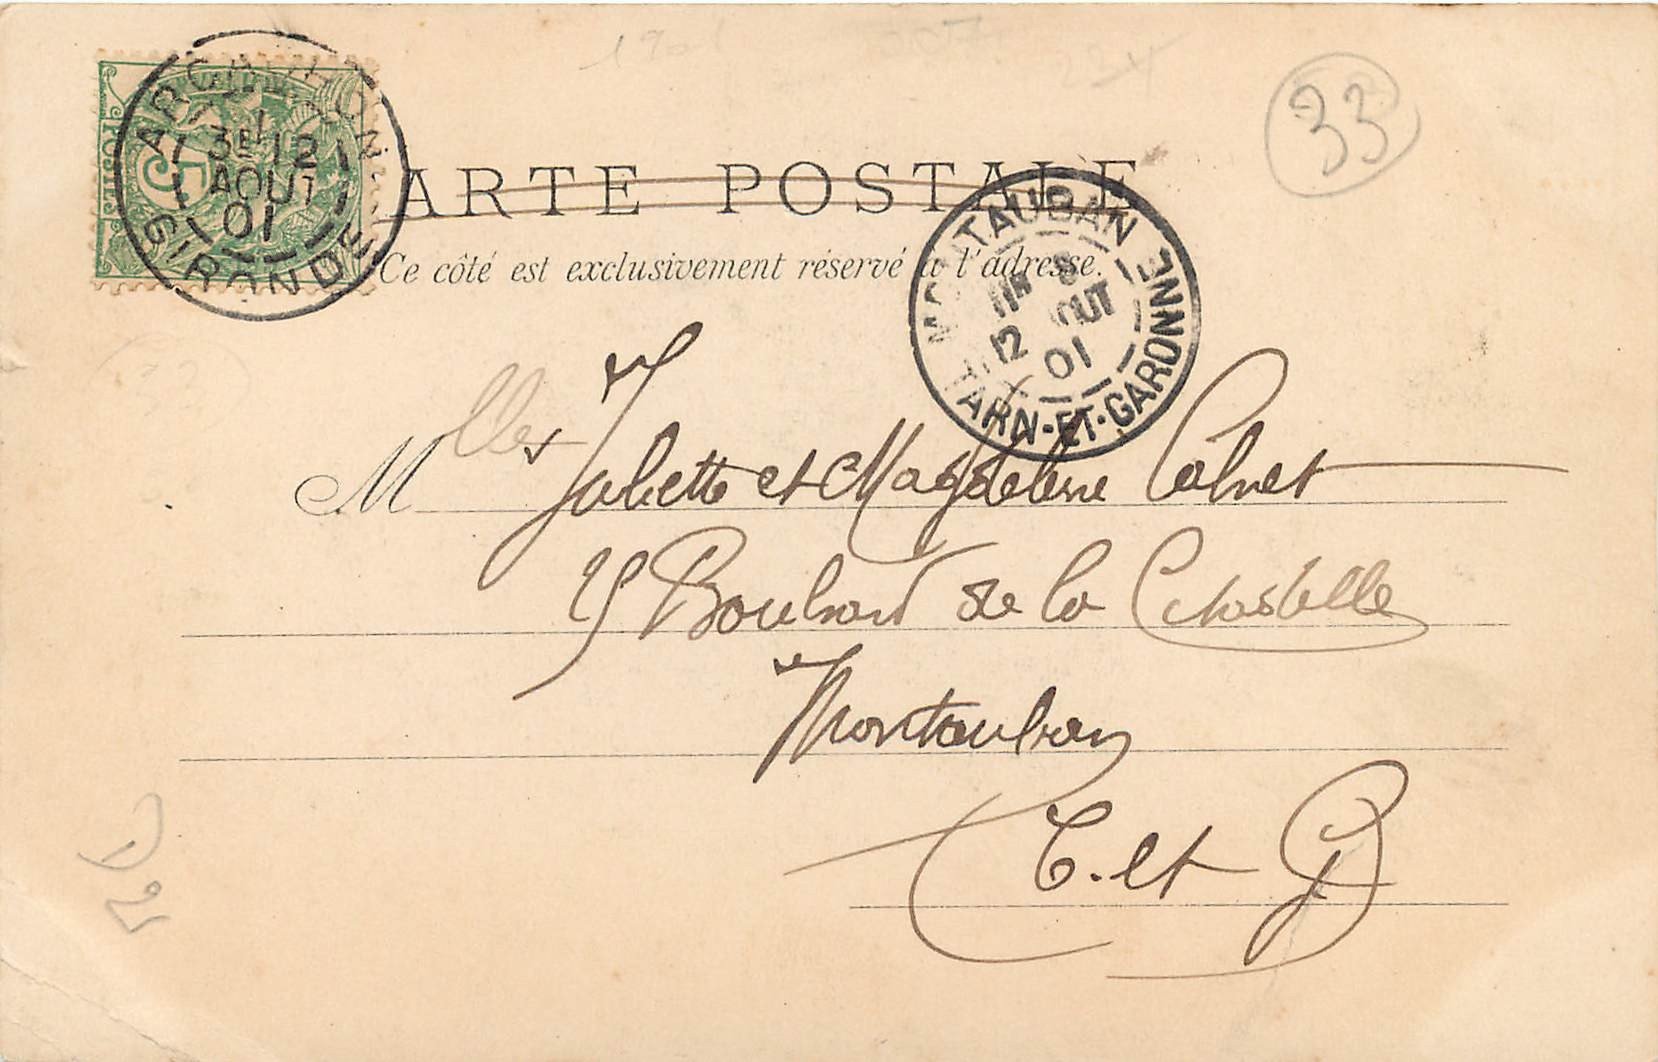 1901
234
33
POSTES
5
ARCACHON
3E 12
AOUT
01
GIRONDE
CARTE POSTALE
Ce côté est exclusivement réservé à l'adresse.
MONTAUBAN
12 AOUT
01
TARN-ET-GARONNE
Mlles Juliette et Magdeleine Calvet
Boulvard de la Citadelle
Montauban
T. et G